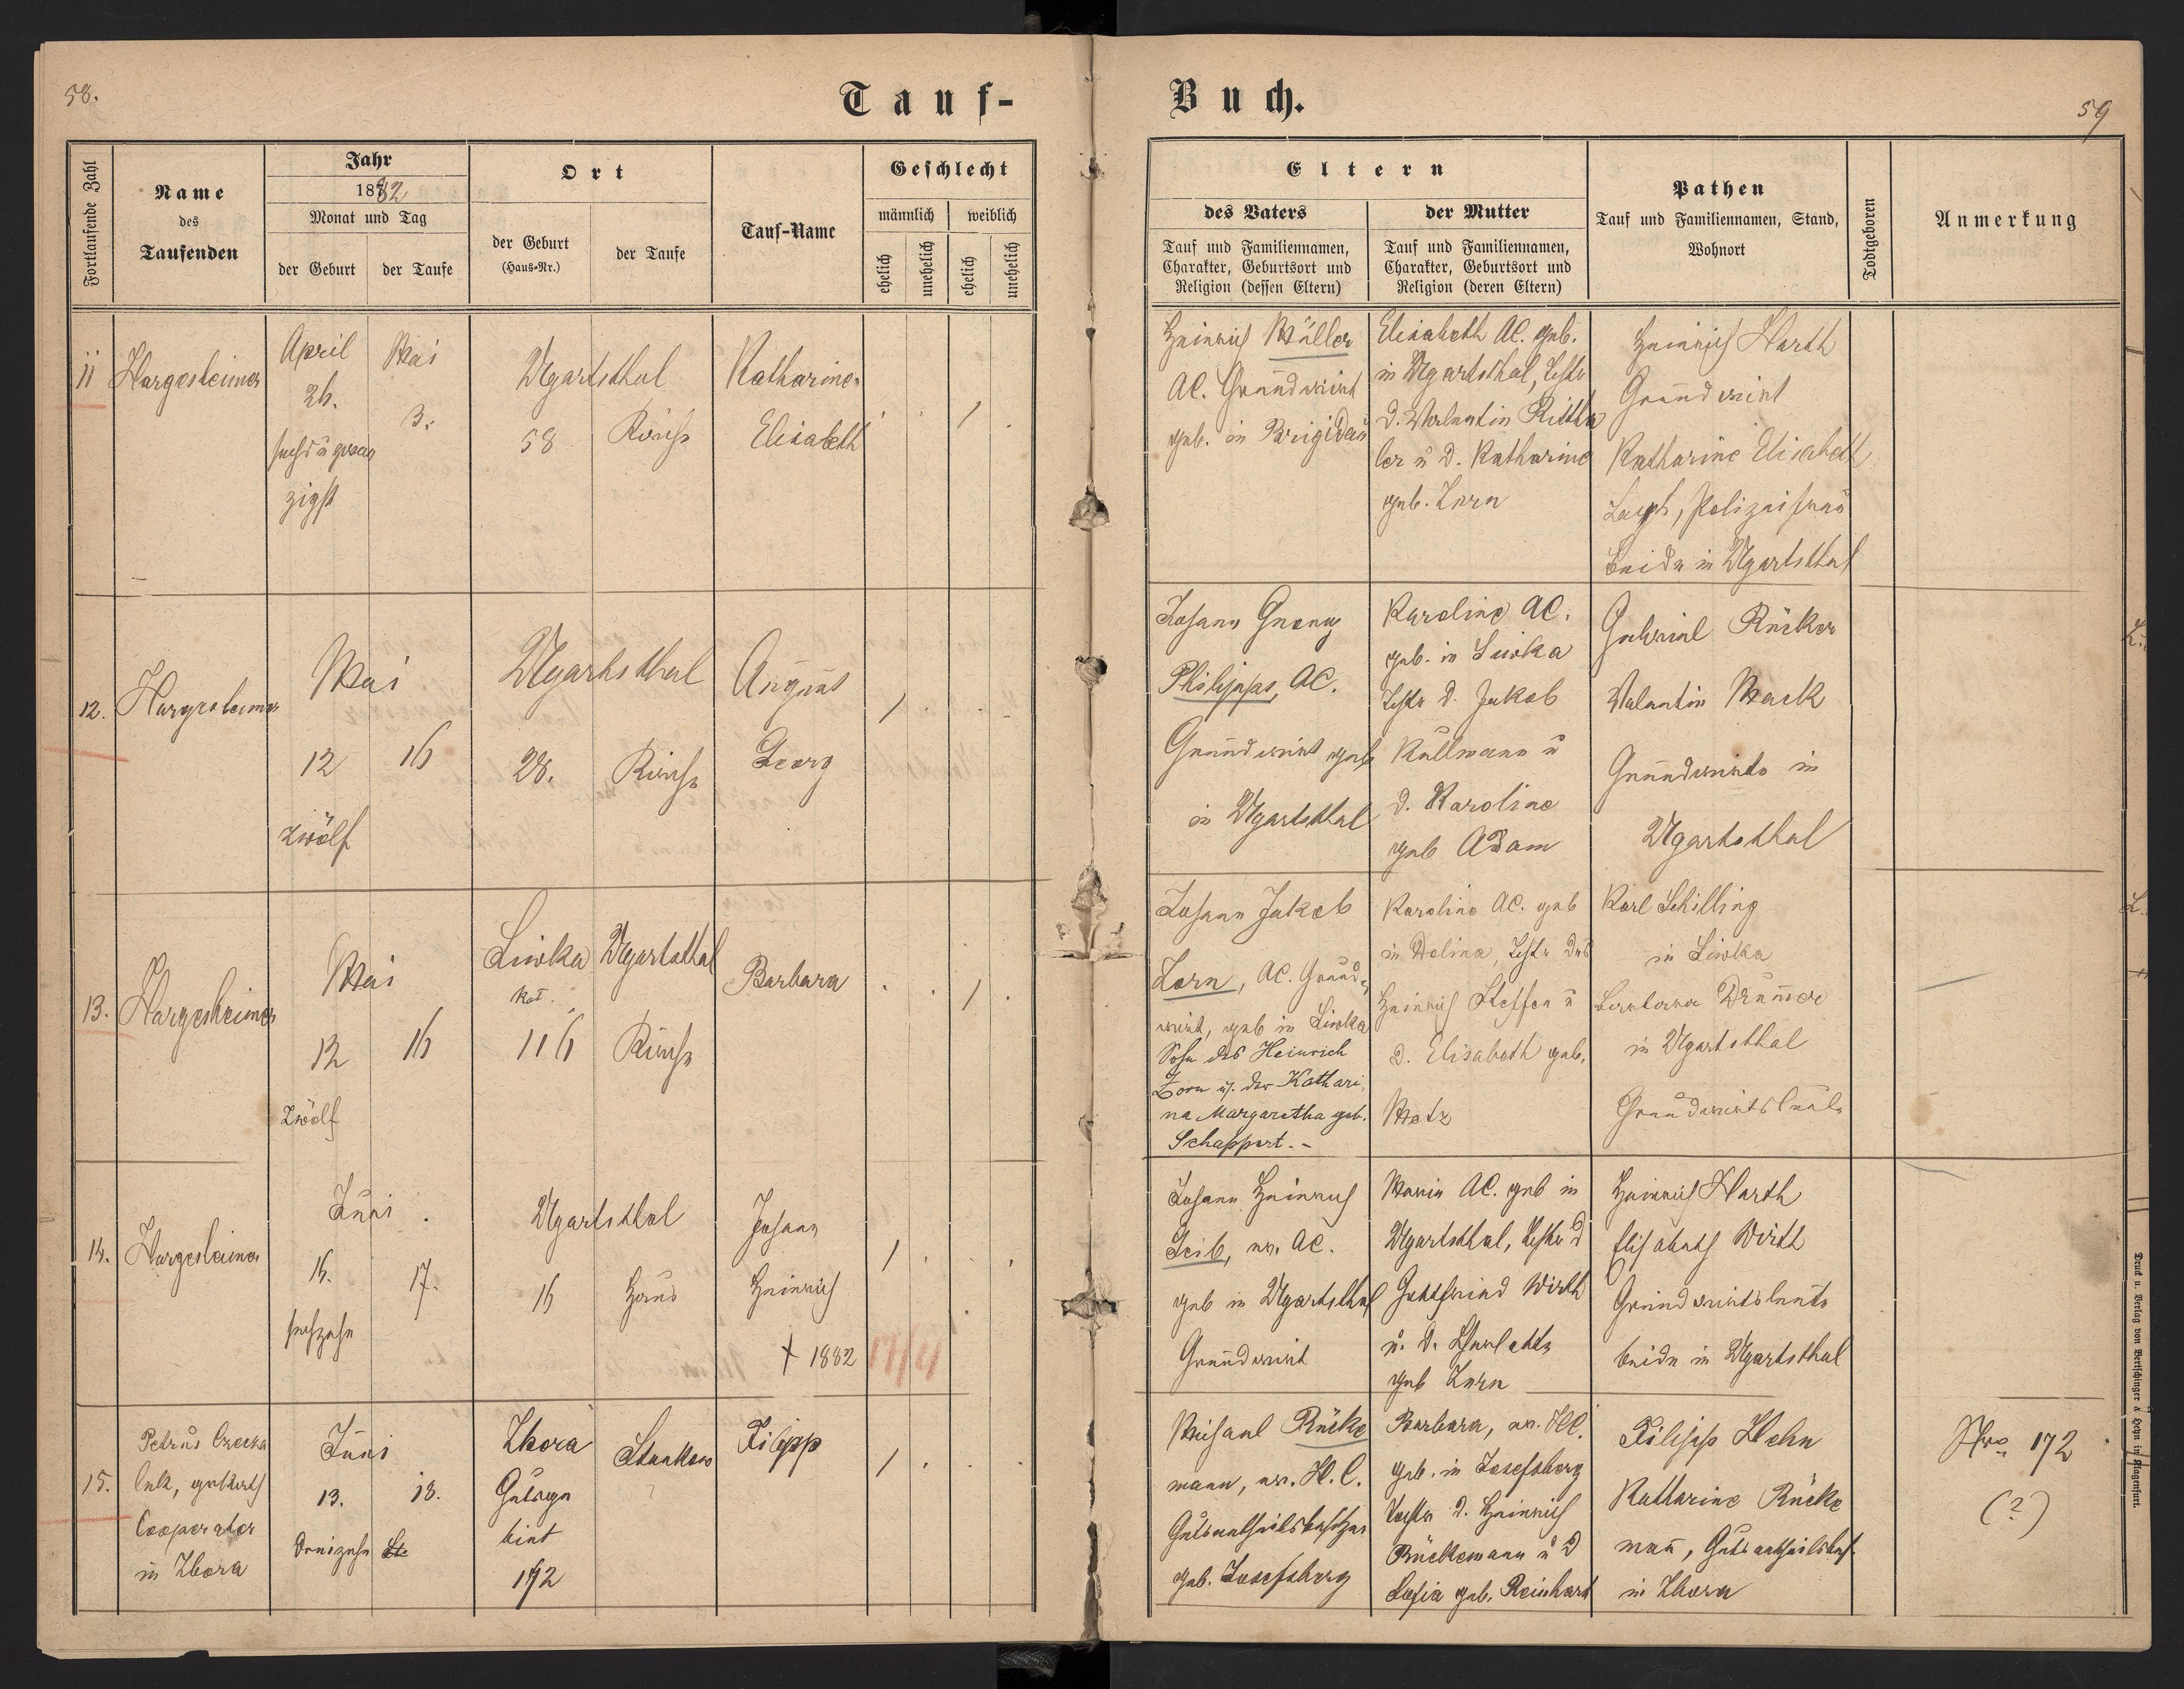 58.
Tauf-
Buch.
59
Fortlaufende Zahl
Name
des
Taufenden
Jahr
1882
Monat und Tag
der Geburt
der Taufe
Ort
der Geburt
(Haus-Nr.)
der Taufe
Tauf-Name
Geschlecht
männlich
weiblich
ehelich
unehelich
ehelich
unehelich
Eltern
des Vaters
Tauf und Familiennamen,
Charakter, Geburtsort und
Religion (dessen Eltern)
der Mutter
Tauf und Familiennamen,
Charakter, Geburtsort und
Religion (deren Eltern)
Pathen
Tauf und Familiennamen, Stand,
Wohnort
Todtgeboren
Anmerkung
11
Hargesheimer
April
26.
sechs u zwan
zigst
Mai
3.
Ugartsthal
58
Kirche
Katharine
Elisabeth
1
Heinrich Müller
AC. Grundwirt
geb. in Brigidau
Elisabeth AC. geb.
in Ugartsthal, Tocht
d. Valentin Ritth
ler u d. Katharine
geb. Zorn
Heinrich Harth
Grundwirt
Katharine Elisabeth
beide in Ugartsthal
12.
Hargesheimer
Mai
12
zwölf
16
Ugartsthal
28.
Kirche
August
Georg
1
Johann Georg
Philipps, AC.
Grundwirt geb
in Ugartsthal
Karoline AC.
geb. in Liwka
Tocht d. Jakob
Kullmann u
d. Karoline
geb Adam
Gabriel Rücker
Valentin Mack
Grundwirte in
Ugartsthal
13.
Hargesheimer
Mai
12
zwölf
16
Liwka
kat.
116
Ugartsthal
Kirche
Barbara
1
Johann Jakob
Zorn, AC. Grund-
wirt, geb in Liwka
Sohn des Heinrich
Zorn u. der Kathari
na Margaretha geb.
Schappert. -
Karoline AC. geb
in Dolina, Tocht des
Heinrich Steffen u
d. Elisabeth geb.
Metz
Karl Schilling
in Liwka
Barbara
in Ugartsthal
Grundwirtsleute
14.
Hargesheimer
Juni
16.
sechzehn
17.
Ugartsthal
16
Haus
Johann
Heinrich
† 1882
1
Johann Heinrich
Leib, ev. AC.
geb in Ugartsthal
Grundwirt
Maria AC. geb in
Ugartsthal, Tochter d
Gottfried Wirth
u. d. Charlotte
geb Zorn
Heinrich Harth
Elisabeth Wirth
Grundwirtsleute
beide in Ugartsthal
15.
Petrus
Cooperator
in Zbora
Juni
13.
dreizehn
18.
Zbora
Gutsge
biet
172
Stankow
Filipp
1
Michael Rücke
mann, ev. H.C.
Gutsantheilsbesitzer
geb. Josefsberg
Barbara, ev. HC.
geb. in Josefsberg
Tocht d. Heinrich
Rückemann u d
Sofia geb. Reinhart
Filipp Hehn
Katharine Rücke
mann, Gutsantheilsbes.
in Zbora
Nro 172
(?)
Druck u. Verlag von Bertschinger & Heyn in Klagenfurt.